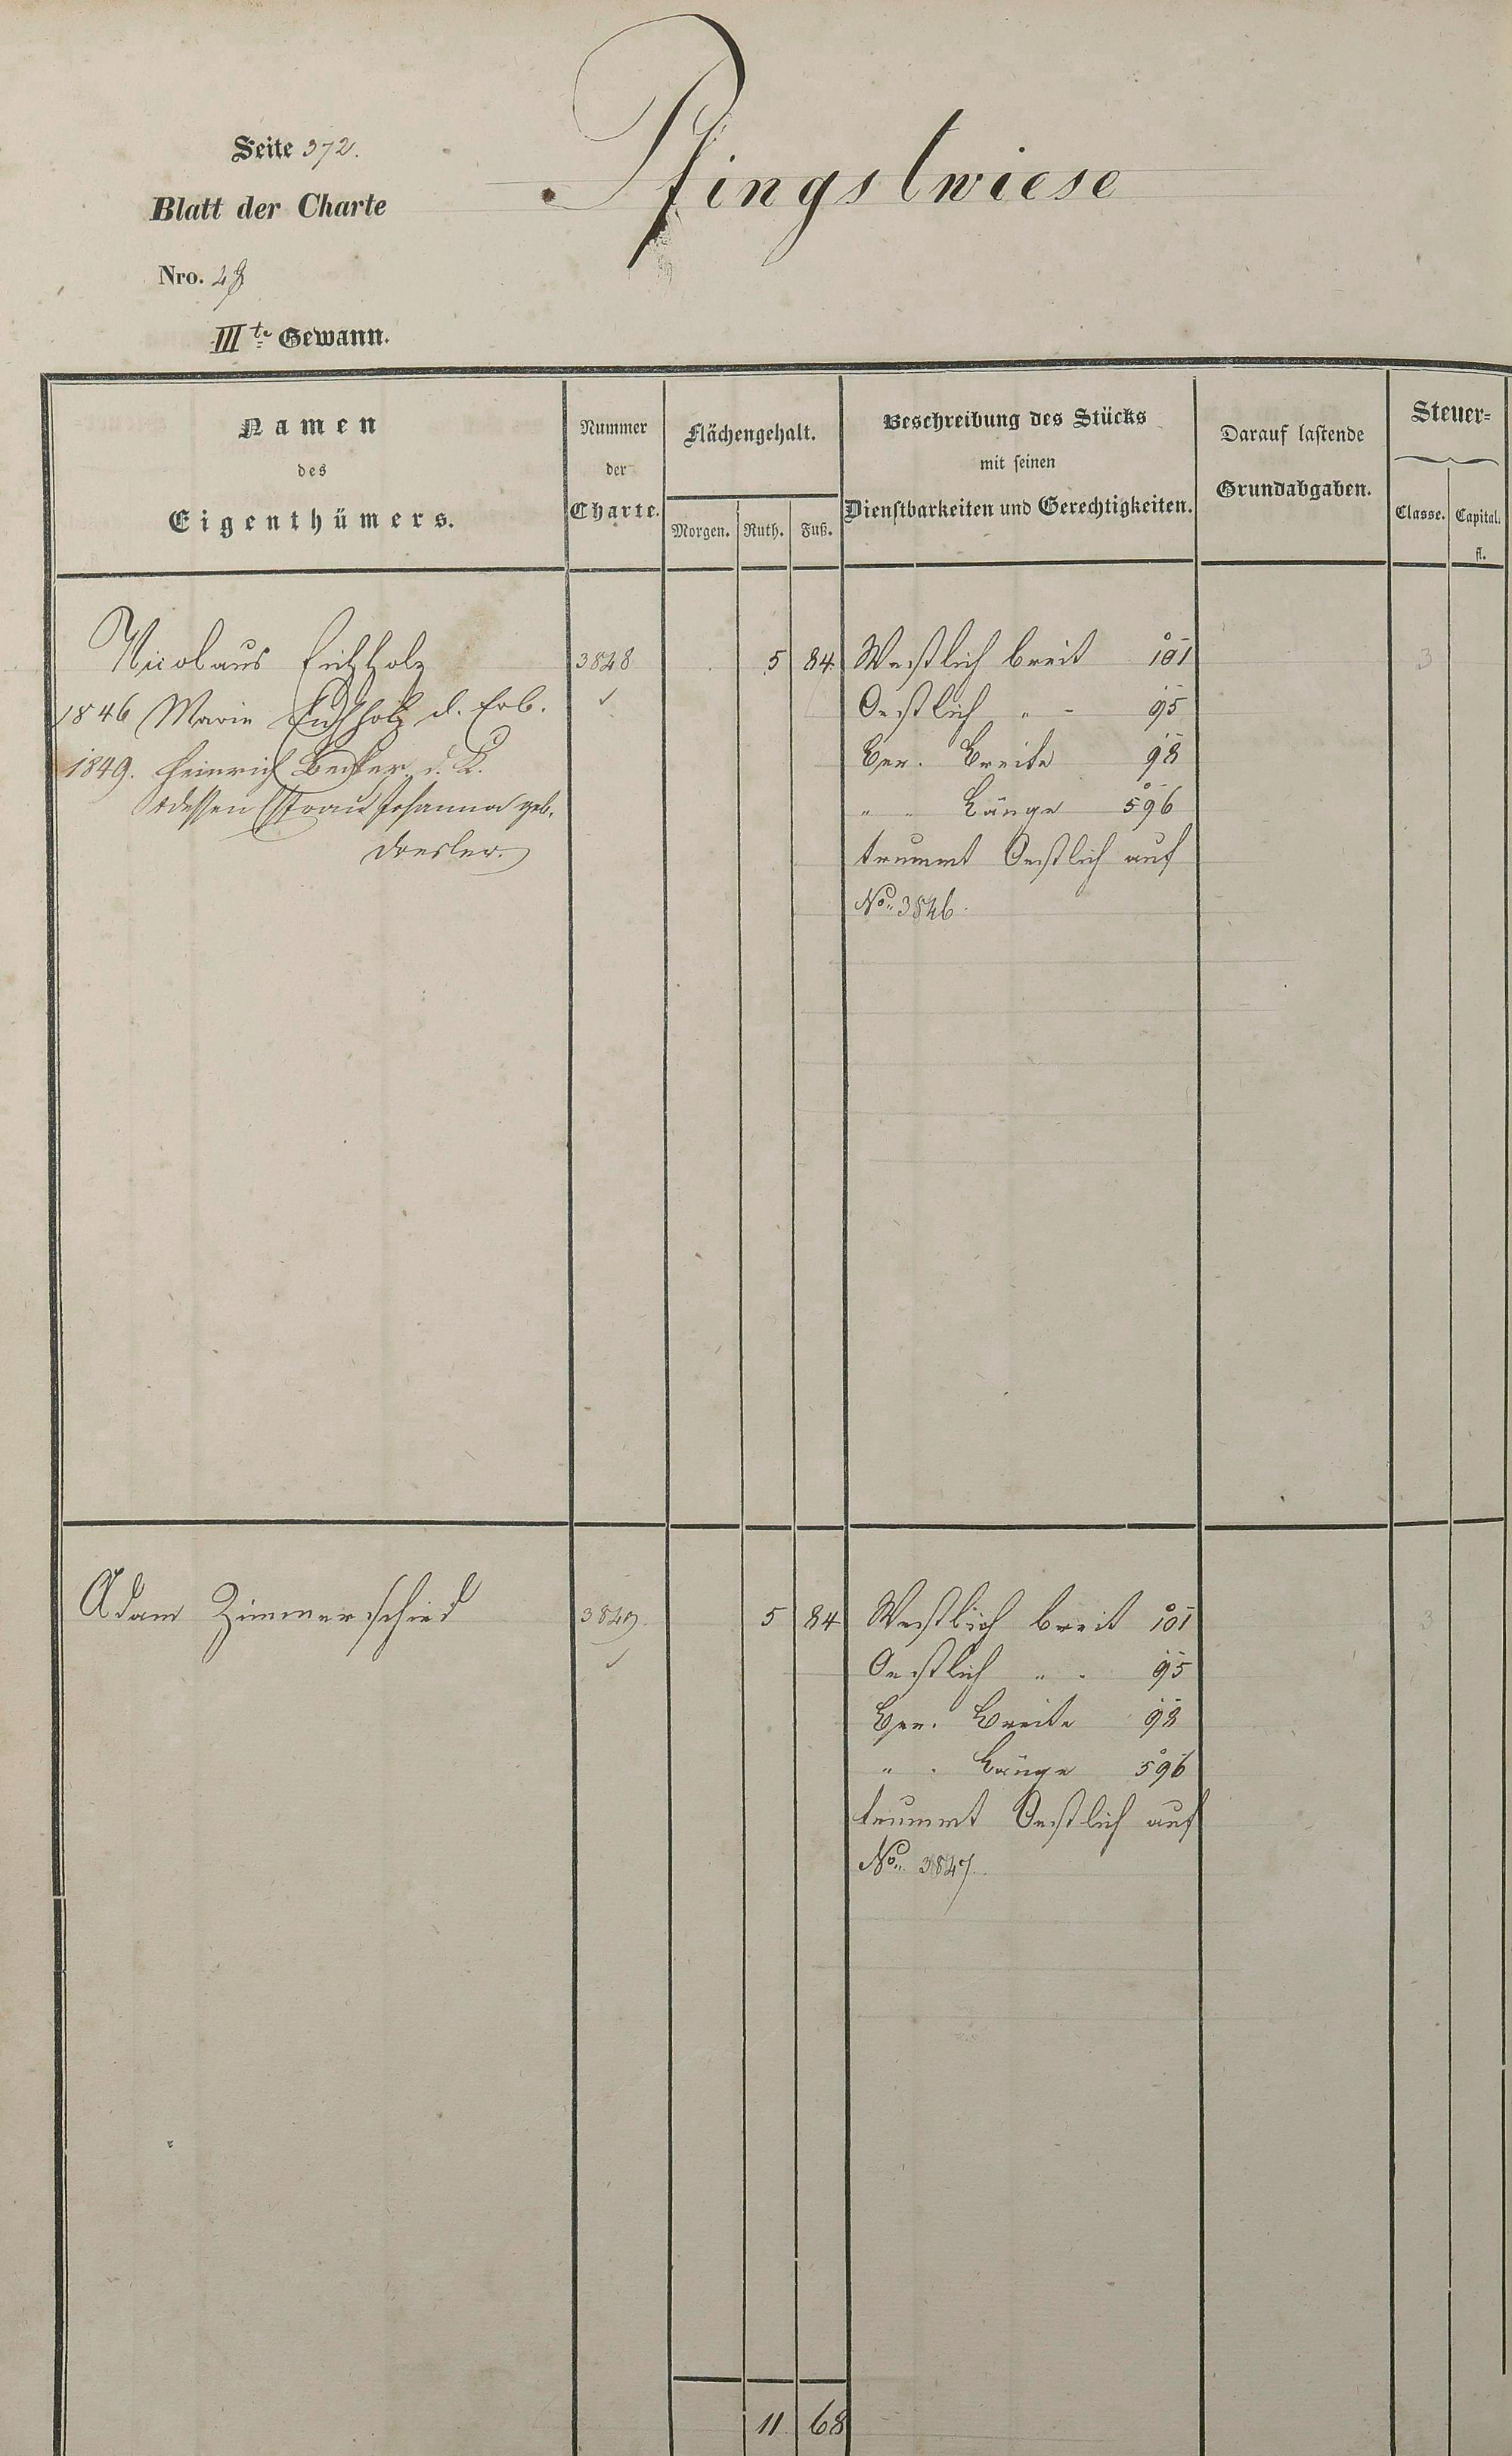 Seite 372.
Blatt der Charte
Nro. 28
Pfingstwiese
III te Gewann.
Namen
des
Eigenthümers.
Nummer
der
Charte.
Flächengehalt.
Morgen. Ruth. Fuß.
Beschreibung des Stücks
mit seinen
Dienstbarkeiten und Gerechtigkeiten.
Darauf lastende
Grundabgaben.
Steuer=
Classe. Capital.
fl.
Nicolaus Eichholz 3828 5 84 Westlich breit 101 3
1846 Marie Eichholz d. Erb. Oestlich " - 95
1849. Heinrich Becker d. K. Ber. Breite 98
& dessen Frau Johanna geb. " " Länge 596
Dresler. trummt Oestlich auf
No. 3826.
Adam Zimmerschied 3829. 5 84 Westlich breit 101 3
Oestlich " - 95
Ber. Breite 98
" " Länge 596
trummt Oestlich auf
No. 3827.
11 68